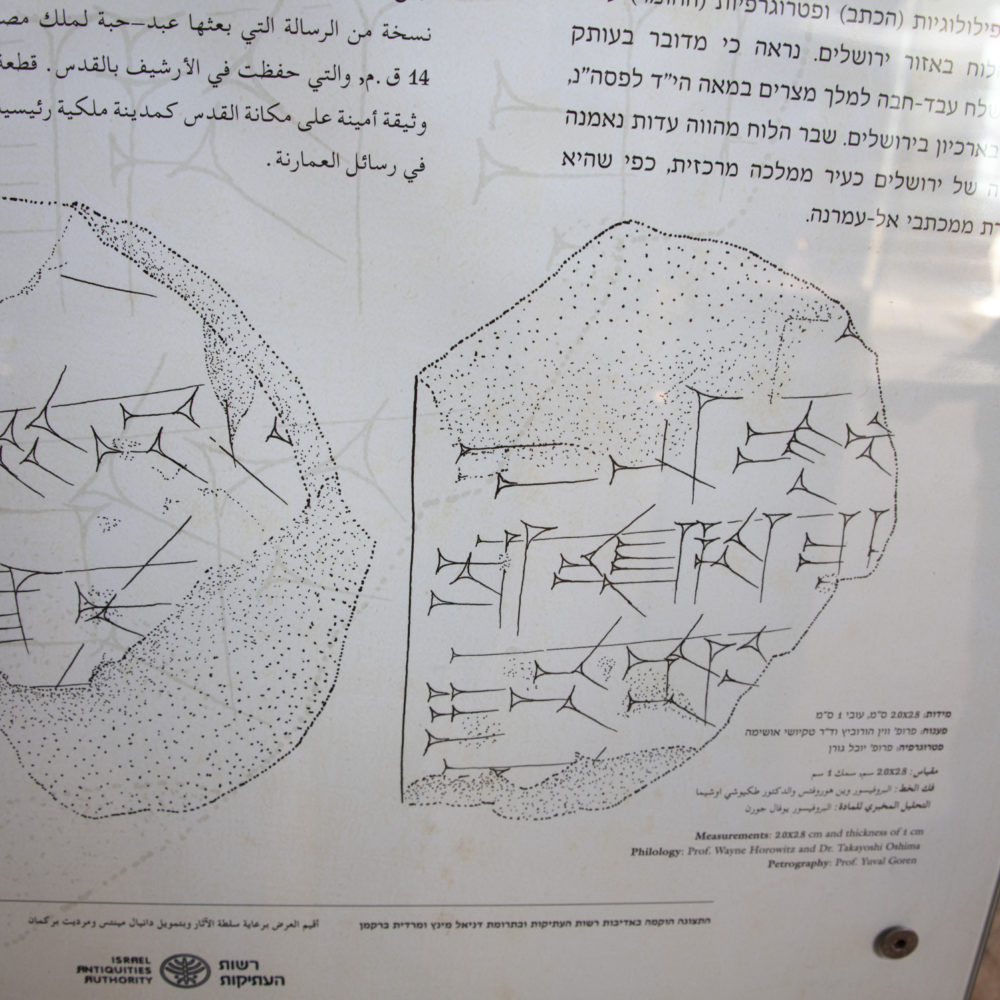 نسخة من الرسالة التي بعثها عبد-حبة لملك
14 ق.م, والتي حفظت في الأرشيف بالقدس. قطعة
وثيقة أمينة على مكانة القدس كمدينة ملكية
في رسائل العمارنة.
(הכתב) ופטרוגרפיות
באזור ירושלים. נראה כי מדובר בעותק
עבד-חבה למלך מצרים במאה הי"ד לפסה"נ,
בארכיון בירושלים. שבר הלוח מהווה עדות נאמנה
של ירושלים כעיר ממלכה מרכזית, כפי שהיא
ממכתבי אל-עמרנה.
מידות: 2.0X2.8 ס"מ, עובי 1 ס"מ
פענוח: פרופ' ווין הורוביץ וד"ר טקיושי אושימה
פטרוגרפיה: פרופ' יובל גורן
مقياس: 2.0X2.8 سم, سمك 1 سم
فك الخط: البروفيسور وين هوروفتس والدكتور طكيوشي اوشيما
التحليل المخبري للمادة: البروفيسور يوفال جورن
Measurements: 2.0X2.8 cm and thickness of 1 cm
Philology: Prof. Wayne Horowitz and Dr. Takayoshi Oshima
Petrography: Prof. Yuval Goren
התצוגה הוקמה באדיבות רשות העתיקות ובתרומת דניאל מינץ ומרדית ברקמן
أقيم العرض برعاية سلطة الآثار وبتمويل دانيال مينتس ومرديت بركمان
רשות
העתיקות
ISRAEL
ANTIQUITIES
AUTHORITY